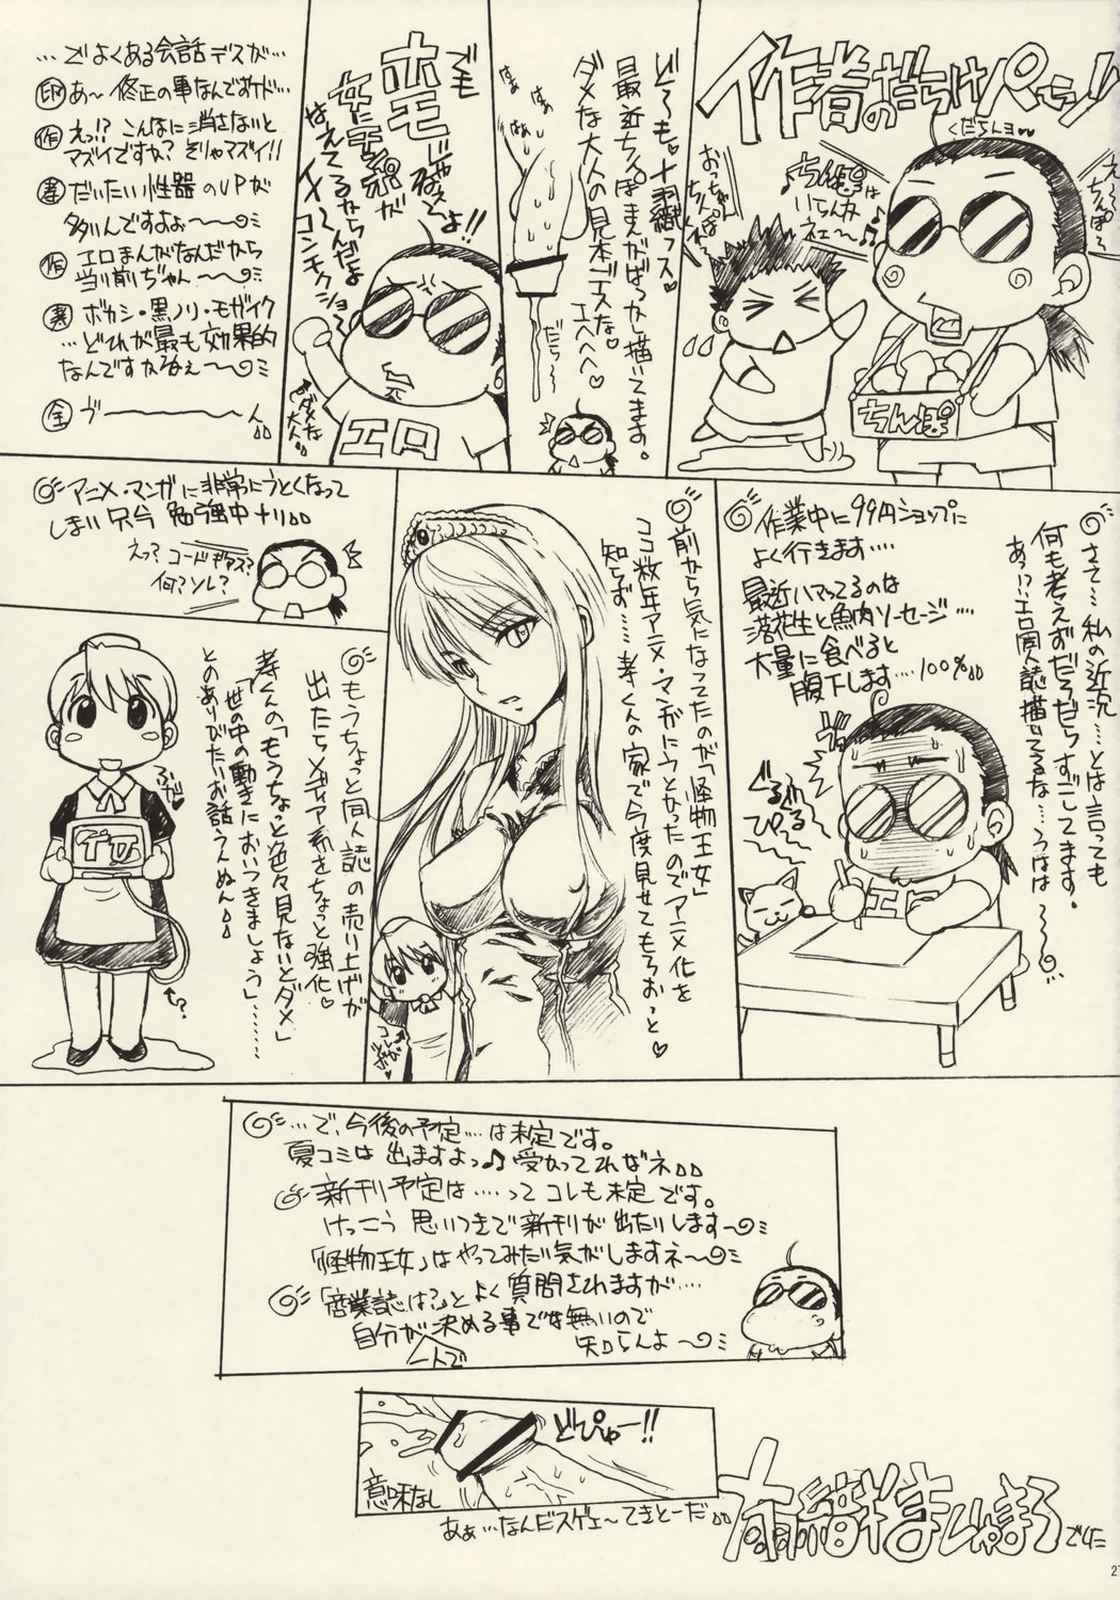 作者のだらけページ
くだらんヨ
ちんぽは
いらんカ
ネェ〜
おっちゃん
ちんぽ
ちんぽ
どうも、十羽織っス
最近ちんぽまんがばっかし描いてます。
ダメな大人の見本デスな
エヘヘヘ♡
はぁ
だら〜
でも
ホモじゃねえぞよ!!
女にチンポが
はえてるならいいんだよ
コンチクショー
エロ
ダメな
大人
…でよくある会話デスが…
印 あ〜修正の事なんですケド…
作 えっ!? こんなに消さないと
マズイですか? そりゃマズイ!!
孝 だいたい性器のUPが
多いんですよぉ〜〜
作 エロまんがなんだから
当り前ぢゃん〜〜
孝 ボカシ・黒ノリ・モザイク
…どれが最も効果的
なんですかねぇ〜
全 ゔ〜
さて…私の近況…とは言っても
何も考えずだらだらすごしてます。
あっ!?エロ同人誌描いてるな…うはは
作業中に99円ショップに
よく行きます‥‥
最近ハマってるのは
落花生と魚肉ソーセージ‥‥
大量に食べると
腹下します‥‥100%
ぐるぴっるる
エロ
前から気になってたのが「怪物王女」
ココ数年アニメ・マンガにうとかったのでアニメ化を
知らず……孝くんの家で今度見せてもらおっと♡
アニメ・マンガに非常にうとくなって
しまい只今勉強中ナリ
えっ? コードギアス?
何?ソレ?
もうちょっと同人誌の売り上げが
出たらメディア系をちょっと強化♡
孝くんの「もうちょっと色々見ないとダメ」
「世の中の動きにおいつきましょう」……
とのありがたいお話うんぬん
…で、今後の予定…は未定です。
夏コミは出ますよっ♪受かってればネ
新刊予定は‥‥ってコレも未定です。
けっこう思いつきで新刊が出たりします〜
「怪物王女」はやってみたい気がしますネ〜
「商業誌は?」とよく質問されますが‥‥
自分が一人で決める事では無いので
知らんよ〜
どぴゅー!!
意味なし
あぁ…なんだスゲェ〜てきとーだ
十羽織ましゅまろ
でした